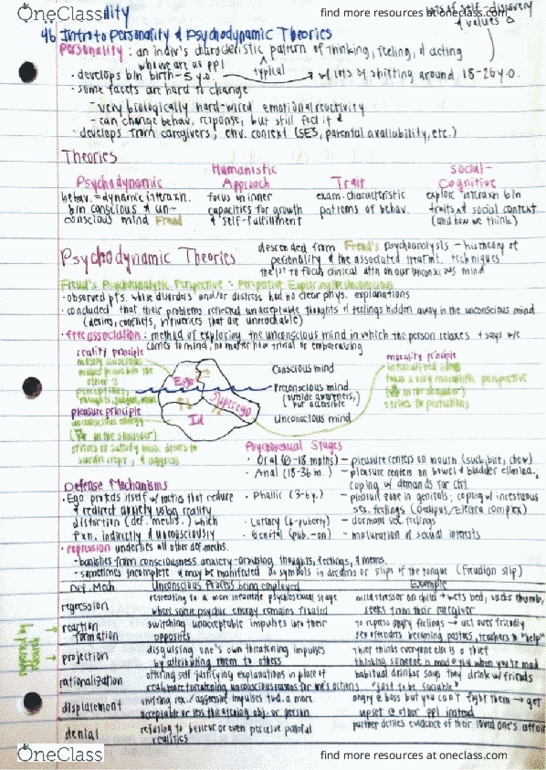 OneClass
find more resources at oneclass.com
lots of self-discovery
& values
46 Intro to Personality & Psychodynamic Theories
Personality: an indiv's characteristic pattern of thinking, feeling, & acting
who we are as ppl
typical
· develops b/n birth-5 y.o.
w/ lots of shifting around 18-26 y.o.
· some facets are hard to change
- very biologically hard-wired emotional reactivity
- can change behav. response, but still feel it
· develops from caregivers, env. context (SES, parental availability, etc.)
Theories
Psychodynamic
behav. = dynamic interaxn.
b/n conscious & un-
conscious mind Freud
Humanistic
Approach
focus on inner
capacities for growth
& self-fulfillment
Trait
exam. characteristic
patterns of behav.
Social-
Cognitive
explore interaxn b/n
traits & social context
(and how we think)
Psychodynamic Theories
descended from Freud's psychoanalysis - his theory of
personality & the associated treatmt. techniques
the 1st to focus clinical attn on our unconscious mind
Freud's Psychoanalytic Perspective: Perspective Exploring the Unconscious
· observed pts. whose disorders and/or distress had no clear phys. explanations
· concluded that their problems reflected unacceptable thoughts & feelings hidden away in the unconscious mind
(desires, conflicts, influences that are unreachable)
· free association: method of exploring the unconscious mind in which the person relaxes & says w/e
comes to mind, no matter how trivial or embarrassing
reality principle
Ego
Superego
Id
pleasure principle
strives to satisfy basic drives to
Conscious mind
Preconscious mind
(outside awareness,
but accessible
Unconscious mind
morality principle
internalized ideas
takes a very moralistic perspective
strives for perfection
Psychosexual Stages
· Oral (0-18 mnths) - pleasure centers on mouth (suck, bite, chew)
· Anal (18-36 m.) - pleasure centers on bowel & bladder elimina.;
coping w/ demands for ctrl.
· Phallic (3-6y.) - pleasure zone in genitals; coping w/ incestuous
sex. feelings (Oedipus/Electra complex)
· Latency (6-puberty) - dormant sex. feelings
· Genital (pub.-on) - maturation of sexual interests
Defense Mechanisms
· Ego protects itself w/ tactics that reduce
& redirect anxiety using reality
distortion (def. mechs.) which
fxn. indirectly & unconsciously
· repression underlies all other def. mechs.
- banishes from consciousness anxiety-arousing thoughts, feelings, & mems.
- sometimes incomplete & may be manifested as symbols in dreams or slips of the tongue (Freudian slip)
Def. Mech
Unconscious Process being employed
Example
regression
retreating to a more infantile psychosexual stage
where some psychic energy remains fixated
mild stressor on child → wets bed, sucks thumb,
seeks from their caregiver
reaction
formation
switching unacceptable impulses into their
opposites
to repress angry feelings → act over friendly
sex offenders becoming pastors, teachers to "help"
projection
disguising one's own threatening impulses
by attributing them to others
thief thinks everyone else is a thief
thinking someone is mad @ you when you're mad
rationalization
offering self-justifying explanations in place of
real, more threatening unconscious reasons for one's actions
habitual drinker says they drink w/ friends
"just to be sociable"
displacement
shifting sex./aggressive impulses twd. a more
acceptable or less threatening obj. or person
angry @ boss but you can't fight them → get
upset @ other ppl instead
denial
refusing to believe or even perceive painful
realities
partner denies evidence of their loved one's affair
OneClass
find more resources at oneclass.com